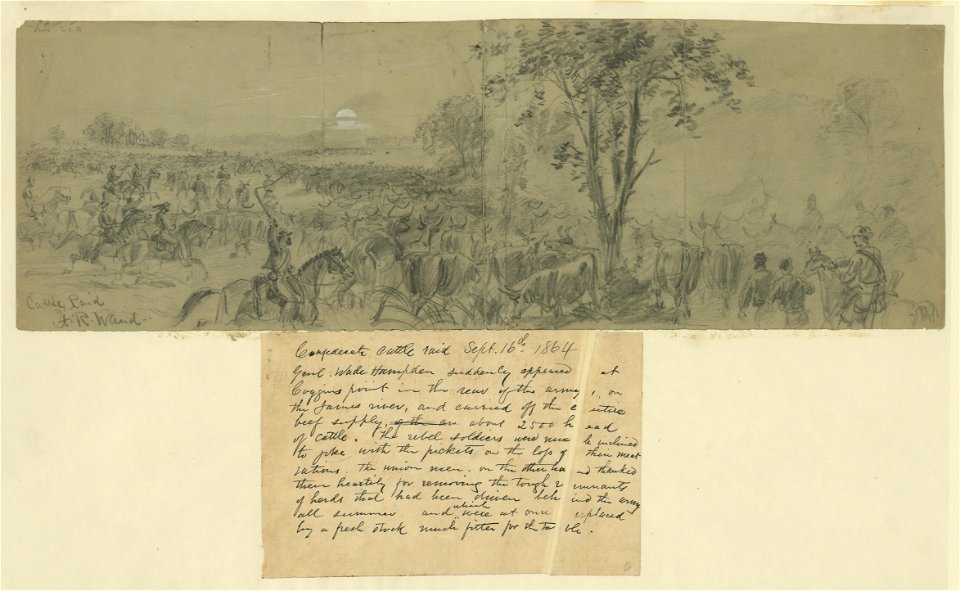 Cattle Raid
A. R. Waud-
Confederate Cattle raid Sept. 16th 1864
Genl. Wade Hampden suddenly appeared at
Coggins point in the rear of the army, on
the James river, and carried off the entire
beef supply, of the an about 2500 head
of cattle. The rebel soldiers were much inclined
to joke with the pickets on the loss of their meat
rations. the union men. on the other hand thanked
them heartily for removing the tough remnants
of herds that had been driven behind the army
all summer. and which were at once replaced
by a fresh stock much fitter for the table.